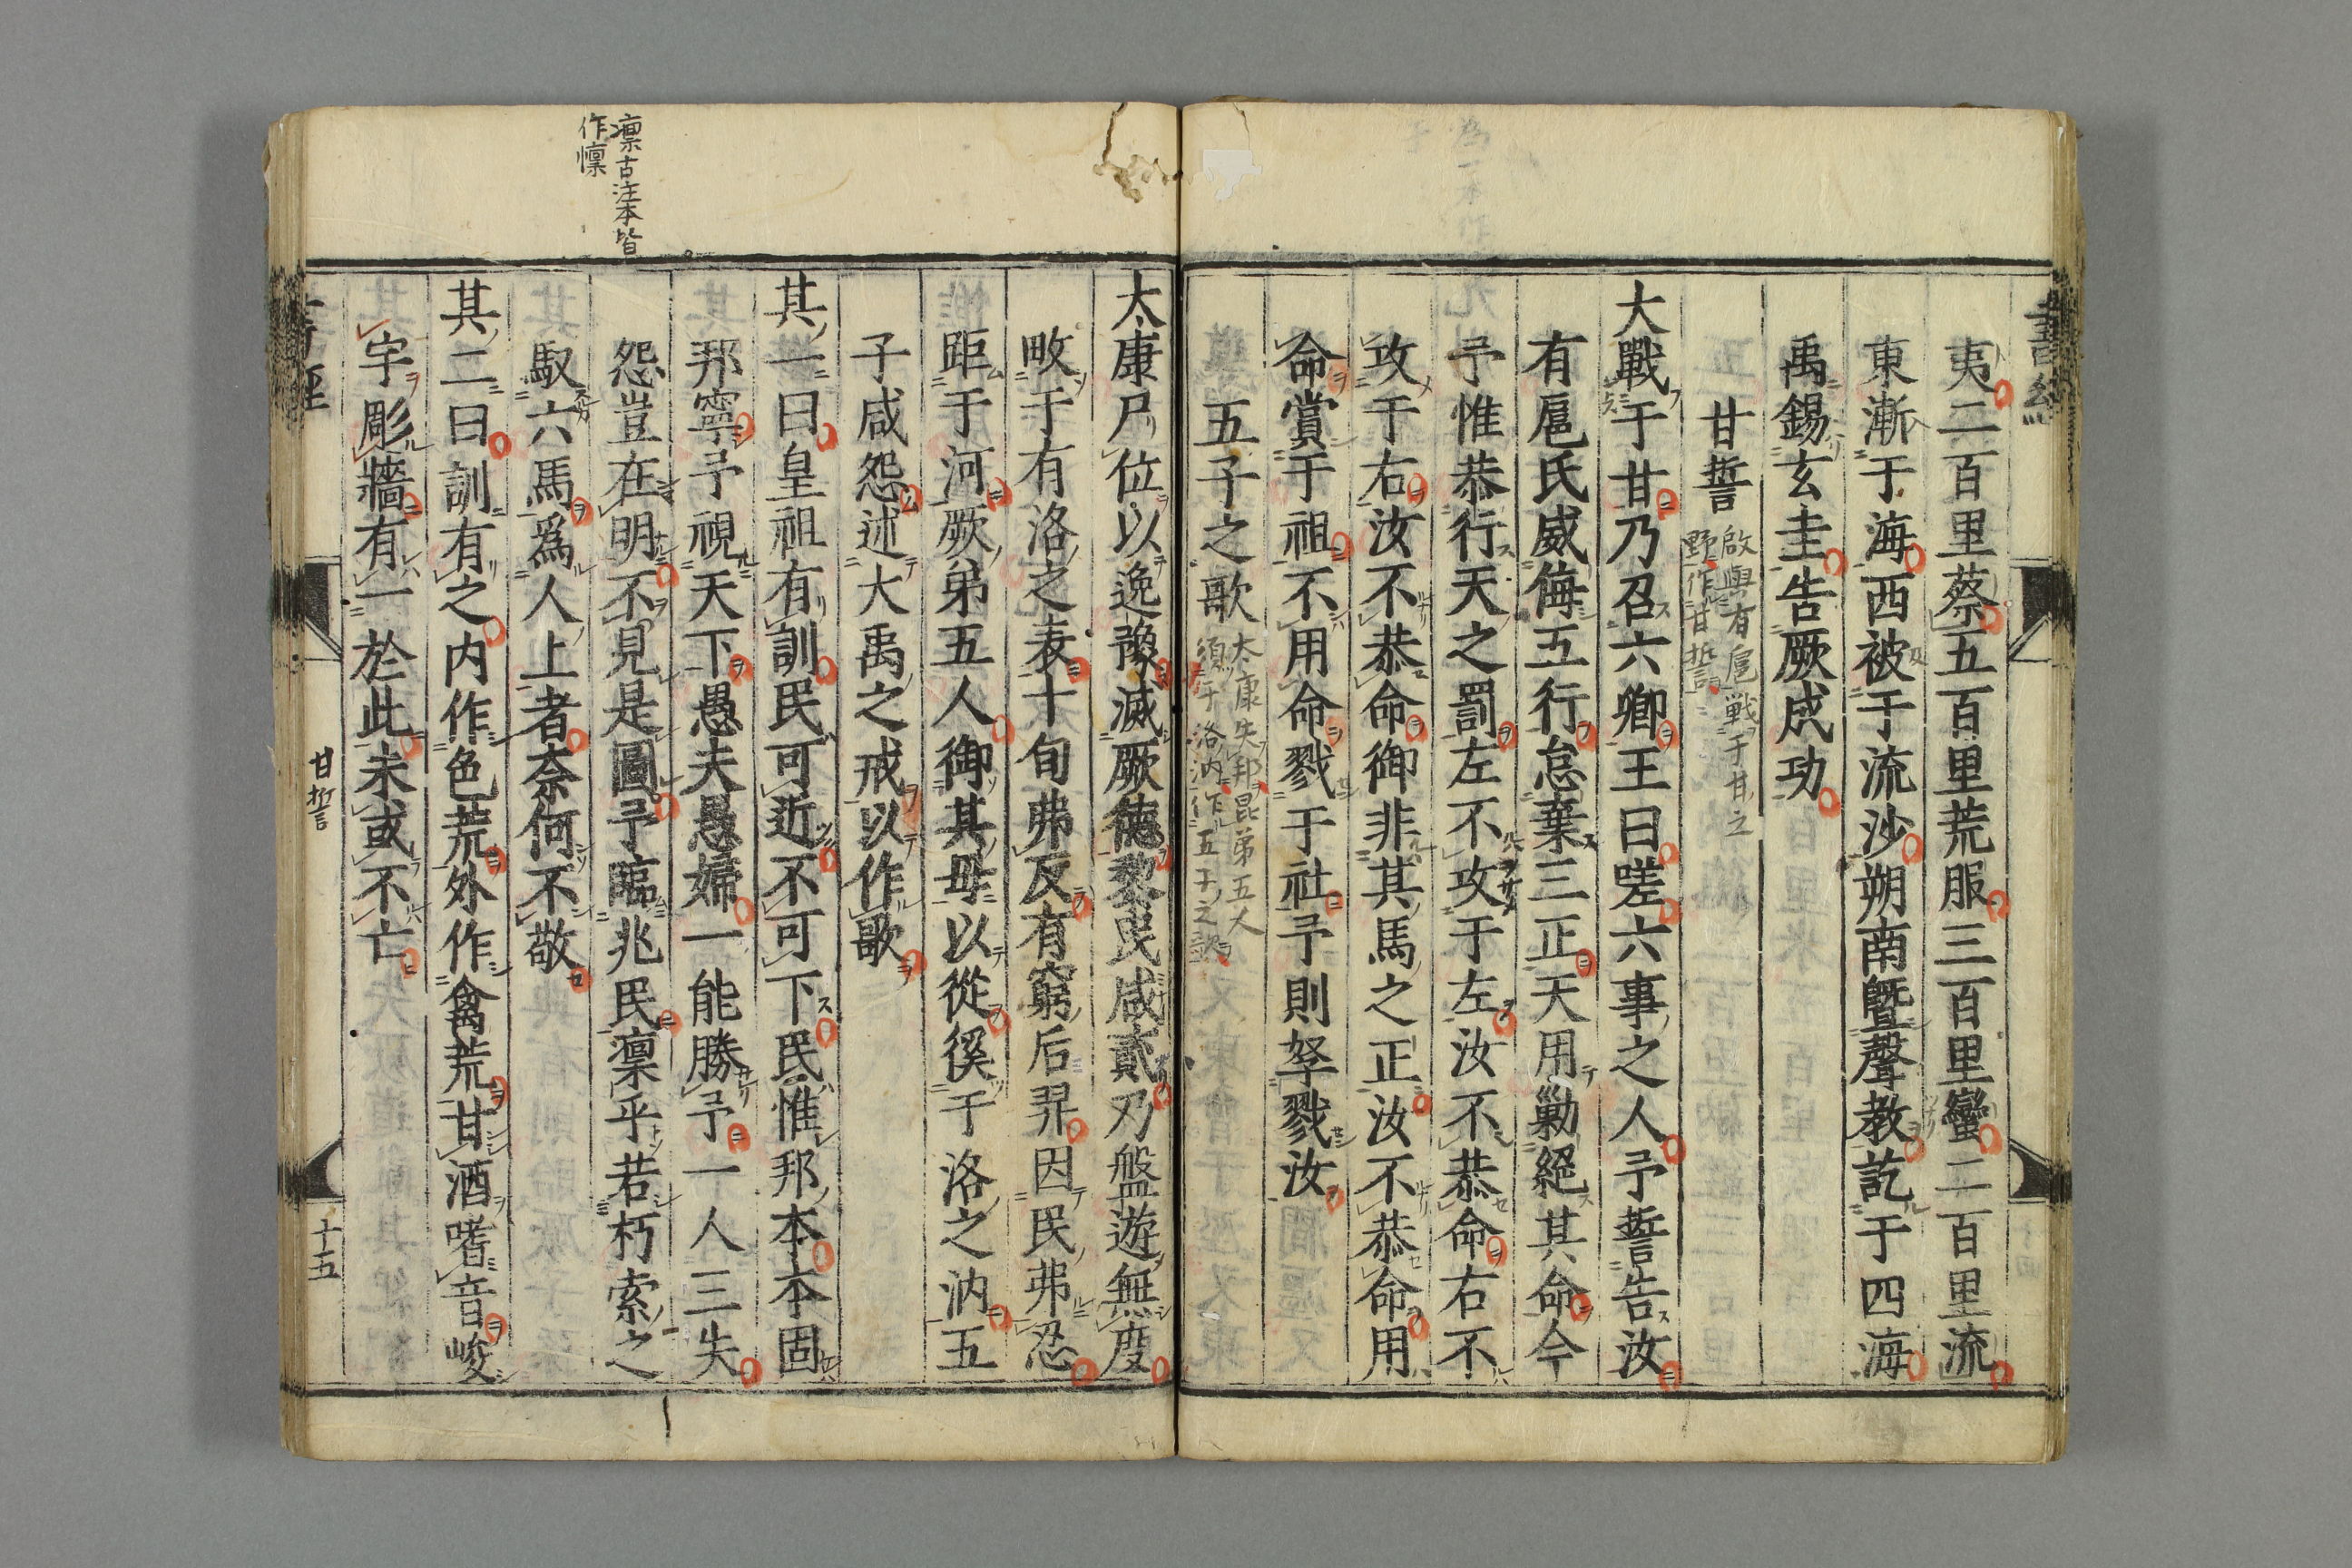 書經
夷二百里蔡五百里荒服三百里蠻二百里流
東漸于海西被于流沙朔南曁聲教訖于四海
禹錫玄圭告厥成功
甘誓
啟與有扈戰于甘之
野作甘誓
大戰于甘乃召六卿王曰嗟六事之人予誓告汝
有扈氏威侮五行怠棄三正天用勦絕其命今
予惟恭行天之罰左不攻于左汝不恭命右不
攻于右汝不恭命御非其馬之正汝不恭命用
命賞于祖不用命戮于社予則孥戮汝
五子之歌
太康失邦昆弟五人
須于洛汭作五子之歌
太康尸位以逸豫滅厥德黎民咸貳乃盤遊無度
畋于有洛之表十旬弗反有窮后羿因民弗忍
距于河厥弟五人御其母以從徯于洛之汭五
子咸怨述大禹之戒以作歌
其一曰皇祖有訓民可近不可下民惟邦本本固
邦寧予視天下愚夫愚婦一能勝予一人三失
怨豈在明不見是圖予臨兆民凛乎若朽索之
凛古注本皆
作懍
馭六馬爲人上者奈何不敬
其二曰訓有之内作色荒外作禽荒甘酒嗜音峻
宇彫牆有一於此未或不亡
書經
甘誓
十五